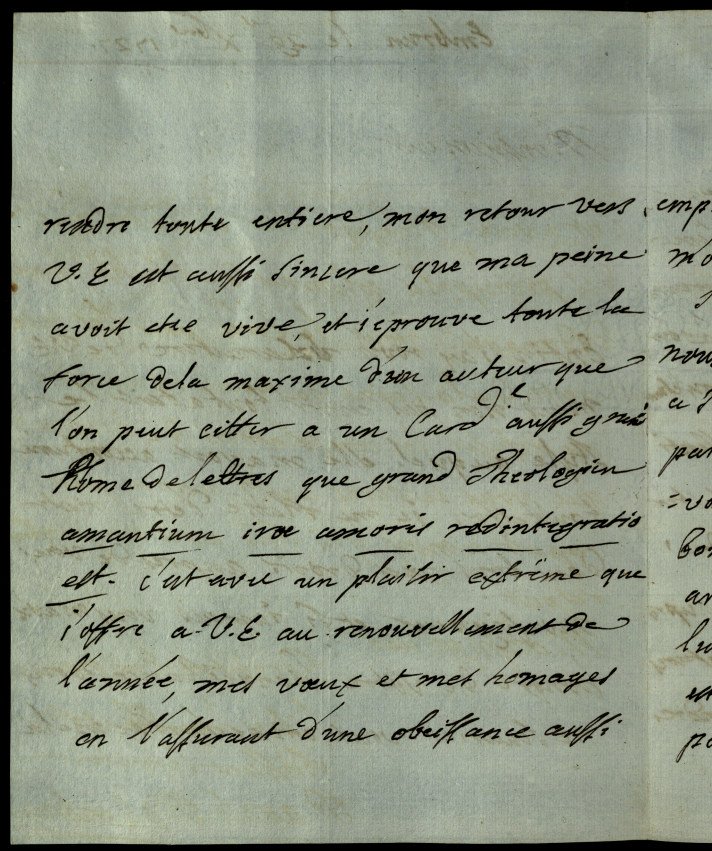 rendre toute entiere, mon retour vers
V.E est aussi sincere que ma peine
avoit eté vive, et i'eprouve toute la
force dela maxime d'un auteur que
l'on peut citter a un Card.^e aussi grand
home de lettres que grand Theologien
amantium iræ amoris redintegratio
est. c'est avec un plaisir extrême que
i'offre a V.E au renouvellement de
l'année, mes vœux et mes homages
en l'assurant d'une obeissance aussi